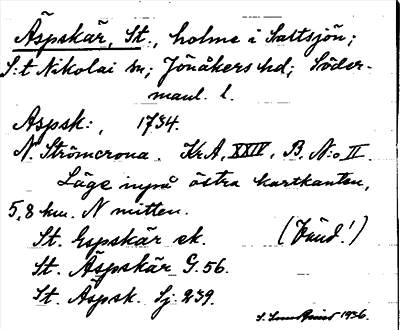 Äspskär, St., holme i Saltsjön;
S:t Nikolai sn; Jönåkers hd; Söder-
manl. l.
Aspsk:, 1734.
N. Strömcrona. KrA, XXIV, B, N:o II.
Läge inpå östra kartkanten,
5,8 km. N mitten.
St. Espskär ek. (Fånd!)
St. Äspskär G. 56.
St. Äspsk. Sj. 239.
S. 1936.